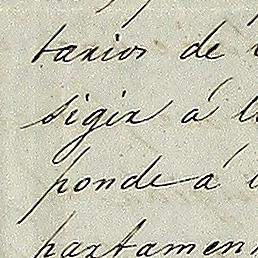 tarios de
sigir á l
ponde á
partamen